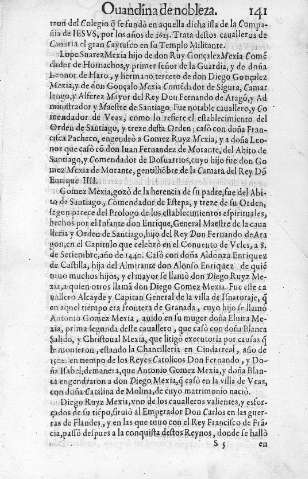 Ouandina de nobleza. 141
tron del Colegio q̃ se fundó en aquella dicha isla de la Compa-
ñia de IESVS, por los años de 1615. Trata destos caualleros de
Canaria el gran Cayrasco en su Templo Militante.
Lope Suarez Mexia hijo de don Ruy Gonçalez Mexia Comẽ
dador de Hornachos, y primer señor de la Guardia, y de doña
Leonor de Haro, y hermano tercero de don Diego Gonçalez
Mexia, y de don Gonçalo Mexia Comẽdador de Sigura, Camar
lengo, y Alferez Mayor del Rey Don Fernando de Aragõ, y Ad
ministrador y Maestre de Santiago. Fue notable cauallero, y Co
mendador de Veas, como lo refiere el establecimiento del
Orden de Santiago, y treze desta Orden; casó con doña Fran-
cisca Pacheco, engendró a Gomez Ruyz Mexia, y a doña Leo-
nor que casó cõ don Iuan Fernandez de Morante, del Abito de
Santiago, y Comendador de Dosuarrios, cuyo hijo fue don Go
mez Mexia de Morante, gentilhõbre de la Camara del Rey Dõ
Enrique IIII.
Gomez Mexia, gozó de la herencia de su padre, fue del Abi-
to de Santiago, Comendador de Estepa, y treze de su Orden,
segun parece del Prologo de los Establecimientos espirituales,
hechos por el Infante don Enrique, General Maestre de la caua
lleria y Orden de Santiago, hijo del Rey Don Fernando de Ara-
gon, en el Capitulo que celebró en el Conuento de Veles, a 8.
de Setiembre, año de 1440. Casó con doña Aldonza Enriquez
de Castilla, hija del Almirante don Alonso Enriquez de quiẽ
tuuo muchos hijos, y el mayor se llamó don Diego Ruyz Me-
xia, a quien otros llamã don Diego Gomez Mexia. Fue este ca
uallero Alcayde y Capitan General de la villa de Iznatorafe, q̃
en aquel tiempo era frontera de Granada, cuyo hijo se llamó
Antonio Gomez Mexia, auido en su muger doña Eluira Me-
xia, prima segunda deste cauallero, que casó con doña Blanca
Salido, y Christoual Mexia, que litigó executoria por causas q̃
le mouieron, estando la Chancilleria en Ciudarreal, año de
en tiempo de los Reyes Catolicos Don Fernando, y Do-
ña Isabel; demanera, que Antonio Gomez Mexia, y doña Blan-
ca engendraron a don Diego Mexia, q̃ casó en la villa de Veas,
con doña Catalina de Molina, de cuyo matrimonio nació.
Diego Ruyz Mexia, vno de los caualleros valientes, y esfor-
çados de su tiẽpo, siruió al Emperador Don Carlos en las guer-
ras de Flandes, y en las que tuuo con el Rey Francisco de Frã-
cia, passó despues a la conquista destos Reynos, donde se halló
S 5 en